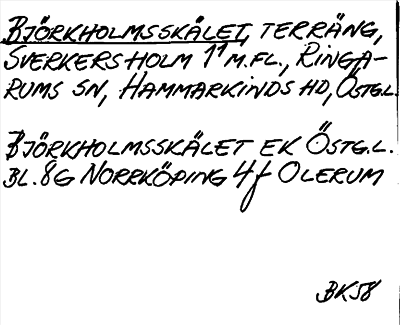 BJÖRKHOLMSSKÅLET, TERRÄNG,
SVERKERSHOLM 1¹ M.FL., RINGA-
RUMS SN, HAMMARKINDS HD, ÖSTG.L.
BJÖRKHOLMSSKÅLET EK ÖSTG.L.
BL. 8G NORRKÖPING 4f OLERUM
BK58